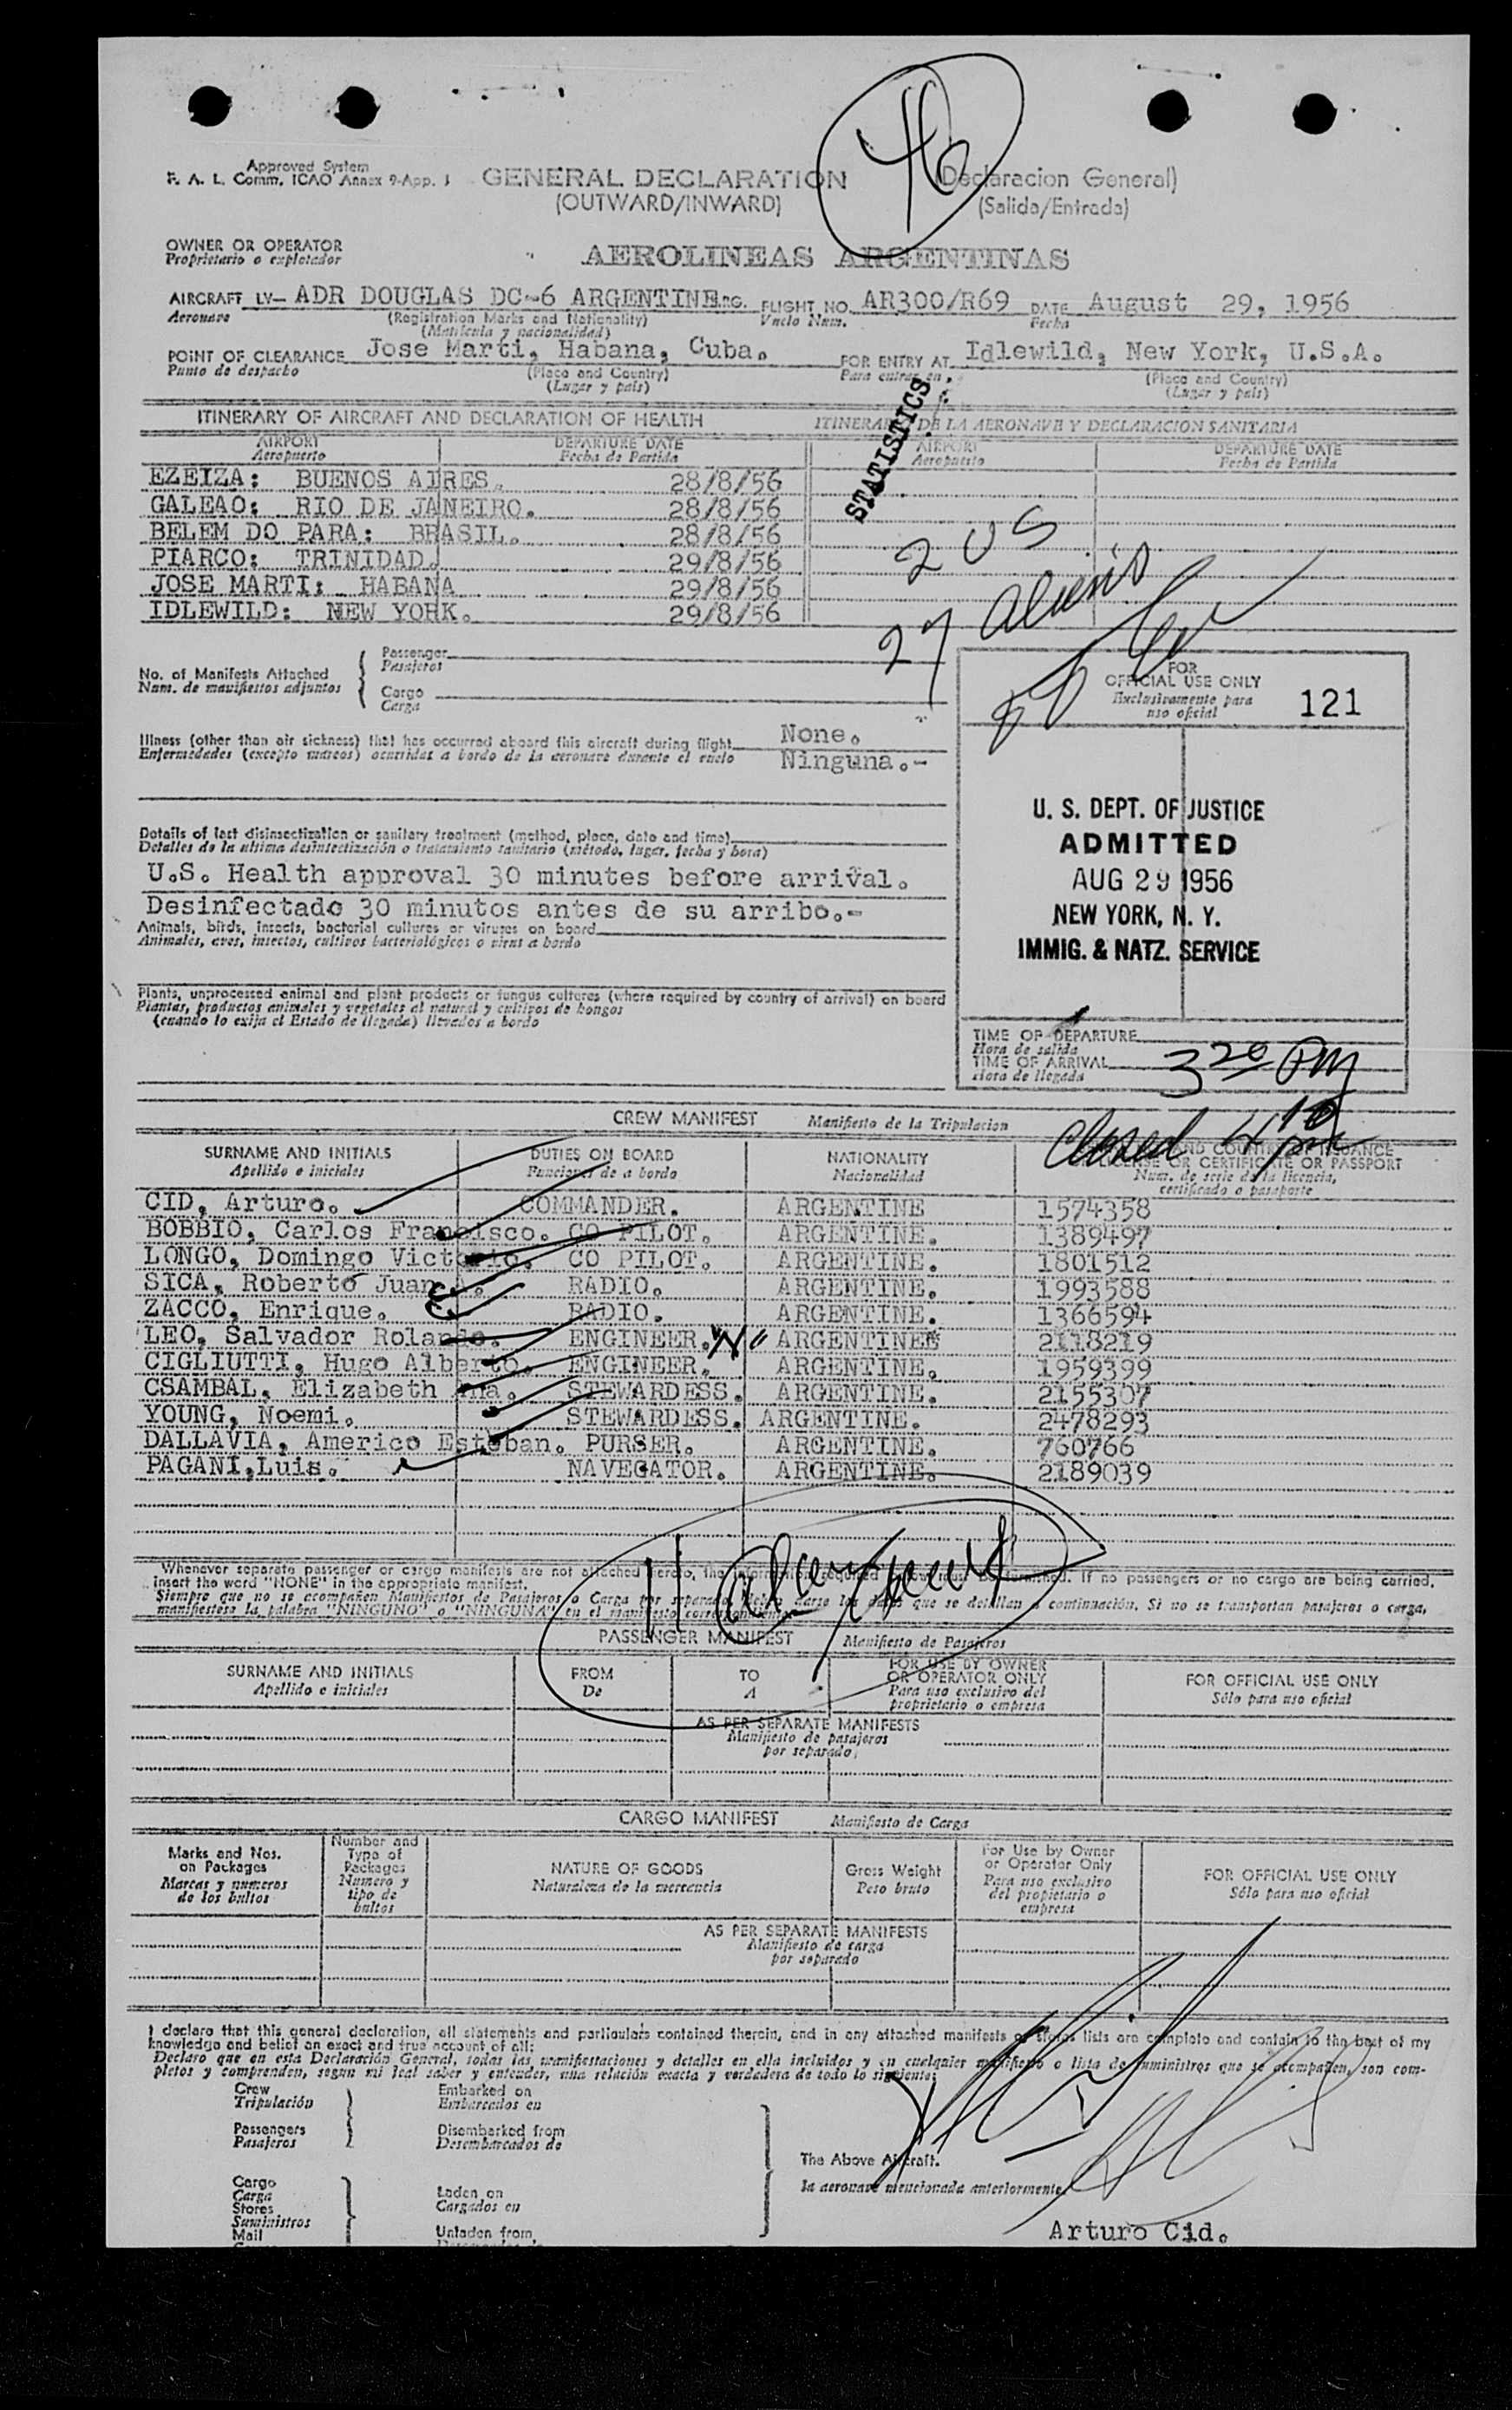 46
Approved System
F. A. L. Comm. ICAO Annex 9-App. 1 GENERAL DECLARATION (Declaracion General)
(OUTWARD/INWARD) (Salida/Entrada)
OWNER OR OPERATOR
Proprietario o explotador
AEROLINEAS ARGENTINAS
AIRCRAFT LV- ADR DOUGLAS DC-6 ARGENTINE FLIGHT NO. AR300/R69 DATE August 29, 1956
Aeronave (Registration Marks and Nationality) Vuelo Num. Fecha
(Matricula y nacionalidad)
POINT OF CLEARANCE Jose Marti, Habana, Cuba. FOR ENTRY AT Idlewild, New York, U.S.A.
Punto de despacho (Place and Country) Para entrar en (Place and Country)
(Lugar y país) (Lugar y país)
STATISTICS
ITINERARY OF AIRCRAFT AND DECLARATION OF HEALTH ITINERARIO DE LA AERONAVE Y DECLARACION SANITARIA
AIRPORT DEPARTURE DATE AIRPORT DEPARTURE DATE
Aeropuerto Fecha de Partida Aeropuerto Fecha de Partida
EZEIZA: BUENOS AIRES. 28/8/56
GALEAO: RIO DE JANEIRO. 28/8/56
BELEM DO PARA: BRASIL. 28/8/56
PIARCO: TRINIDAD. 29/8/56
JOSE MARTI: HABANA 29/8/56
IDLEWILD: NEW YORK. 29/8/56
2 US
27 aliens
No. of Manifests Attached
Num. de manifiestos adjuntos
Passenger
Pasajeros
Cargo
Carga
FOR
OFFICIAL USE ONLY
Exclusivamente para
uso oficial
121
Illness (other than air sickness) that has occurred aboard this aircraft during flight None.
Enfermedades (excepto mareos) ocurridas a bordo de la aeronave durante el vuelo Ninguna.-
Details of last disinsectization or sanitary treatment (method, place, date and time)
Detalles de la ultima desintectización o tratamiento sanitario (método, lugar, fecha y hora)
U.S. Health approval 30 minutes before arrival.
Desinfectado 30 minutos antes de su arribo.-
Animals, birds, insects, bacterial cultures or viruses on board
Animales, aves, insectos, cultivos bacteriológicos o virus a bordo
Plants, unprocessed animal and plant products or fungus cultures (where required by country of arrival) on board
Plantas, productos animales y vegetales al natural y cultivos de hongos
(cuando lo exija el Estado de llegada) llevados a bordo
U. S. DEPT. OF JUSTICE
ADMITTED
AUG 29 1956
NEW YORK, N. Y.
IMMIG. & NATZ. SERVICE
TIME OF DEPARTURE
Hora de salida
TIME OF ARRIVAL 3 20 PM
Hora de llegada
CREW MANIFEST Manifiesto de la Tripulacion
Closed 4 10 pm
SURNAME AND INITIALS DUTIES ON BOARD NATIONALITY
Apellido e iniciales Funciones de a bordo Nacionalidad
LICENSE OR CERTIFICATE OR PASSPORT
Num. de serie de la licencia,
certificado o pasaporte
CID, Arturo. COMMANDER. ARGENTINE 1574358
BOBBIO, Carlos Francisco. CO PILOT. ARGENTINE. 1389497
LONGO, Domingo Victorio. CO PILOT. ARGENTINE. 1801512
SICA, Roberto Juan RADIO. ARGENTINE. 1993588
ZACCO, Enrique. RADIO. ARGENTINE. 1366594
LEO, Salvador Rolando. ENGINEER. "N" ARGENTINE 2118219
CIGLIUTTI, Hugo Alberto. ENGINEER. ARGENTINE. 1959399
CSAMBAL, Elizabeth Ana. STEWARDESS. ARGENTINE. 2155307
YOUNG, Noemi. STEWARDESS. ARGENTINE. 2478293
DALLAVIA, Americo Esteban. PURSER. ARGENTINE. 760766
PAGANI, Luis. NAVEGATOR. ARGENTINE. 2189039
11
Whenever separate passenger or cargo manifests are not attached hereto, the information required must be furnished. If no passengers or no cargo are being carried,
insert the word "NONE" in the appropriate manifest.
Siempre que no se acompañen Manifiestos de Pasajeros o Carga por separado darse los datos que se detallan a continuación. Si no se transportan pasajeros o carga,
manifiestese la palabra "NINGUNO" o "NINGUNA" en el manifiesto correspondiente
PASSENGER MANIFEST Manifiesto de Pasajeros
SURNAME AND INITIALS FROM TO FOR USE BY OWNER OR OPERATOR ONLY FOR OFFICIAL USE ONLY
Apellido e iniciales De A Para uso exclusivo del proprietario o empresa Sólo para uso oficial
AS PER SEPARATE MANIFESTS
Manifiesto de pasajeros
por separado
CARGO MANIFEST Manifiesto de Carga
Marks and Nos. on Packages Number and Type of Packages NATURE OF GOODS Gross Weight For Use by Owner or Operator Only FOR OFFICIAL USE ONLY
Marcas y numeros de los bultos Numero y tipo de bultos Naturaleza de la mercancia Peso bruto Para uso exclusivo del propietario o empresa Sólo para uso oficial
AS PER SEPARATE MANIFESTS
Manifiesto de carga
por separado
I declare that this general declaration, all statements and particulars contained therein, and in any attached manifests or stores lists are complete and contain to the best of my
knowledge and belief an exact and true account of all:
Declaro que en esta Declaración General, todas las manifestaciones y detalles en ella incluidos y en cualquier manifiesto o lista de suministros que se acompañen, son com-
pletos y comprenden, segun mi leal saber y entender, una relación exacta y verdadera de todo lo siguiente:
Crew Embarked on
Tripulación Embarcados en
Passengers Disembarked from
Pasajeros Desembarcados de
The Above Aircraft.
la aeronave mencionada anteriormente
Cargo Laden on
Carga Cargados en
Stores
Suministros
Mail Unladen from
Arturo Cid.